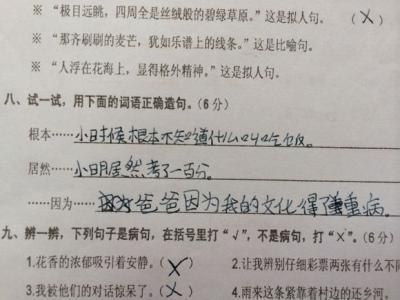 ※ “极目远眺，四周全是丝绒般的碧绿草原。”这是拟人句。 （×）
※ “那齐刷刷的麦芒，犹如乐谱上的线条。”这是比喻句。
※ “人浮在花海上，显得格外精神。”这是拟人句。
八、试一试，用下面的词语正确造句。(6分)
根本……小时候根本不知道什么叫吃饭。
居然……小明居然考了一百分。
……因为……爸爸因为我的文化得了重病。
九、辨一辨，下列句子是病句，在括号里打“√”，不是病句，打“×”。(6分)
1.花香的浓郁吸引着安静。(×) 2.让我辨别仔细彩票两张有什么不同
3.我被他们的对话惊呆了。(×) 4.雨来这条靠着村边的还乡河。